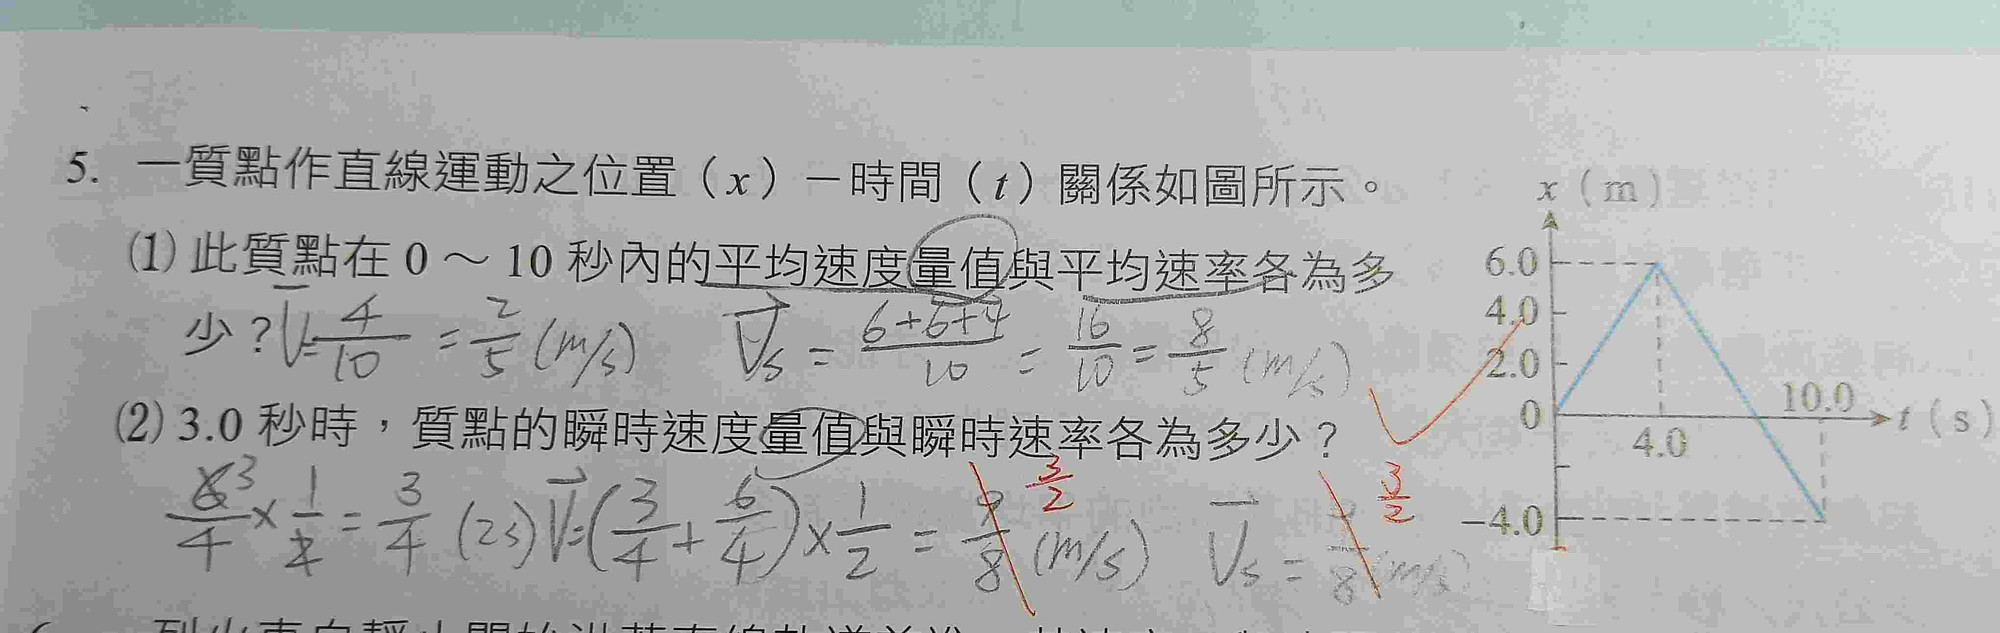 5. 一質點作直線運動之位置（x）－時間（t）關係如圖所示。
(1) 此質點在 0 ～ 10 秒內的平均速度量值與平均速率各為多
少？ V = 4/10 = 2/5 (m/s) Vs = 6+6+4/10 = 16/10 = 8/5 (m/s)
(2) 3.0 秒時，質點的瞬時速度量值與瞬時速率各為多少？
3/2 3/2
6 3/4 × 1/2 = 3/4 (2s) V = (3/4 + 6/4) × 1/2 = 9/8 (m/s) Vs = 9/8 (m/s)
x（m）
6.0
4.0
2.0
0
4.0
10.0
t（s）
−4.0